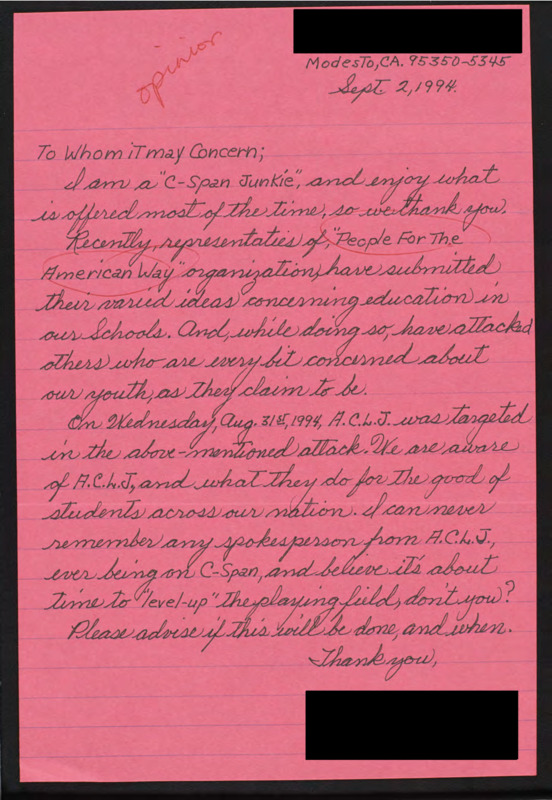 opinion
Modesto, CA. 95350-5345
Sept. 2, 1994.
To Whom it may Concern;
I am a "C-Span Junkie", and enjoy what
is offered most of the time, so we thank you.
Recently, representaties of, "People For The
American Way" organization, have submitted
their varied ideas concerning education in
our Schools. And, while doing so, have attacked
others who are every bit concerned about
our youth, as they claim to be.
On Wednesday, Aug. 31st, 1994, A.C.L.J. was targeted
in the above-mentioned attack. We are aware
of A.C.L.J, and what they do for the good of
students across our nation. I can never
remember any spokesperson from A.C.L.J.,
ever being on C-Span, and believe it's about
time to "level-up" the playing field, don't you?
Please advise if this will be done, and when.
Thank you,